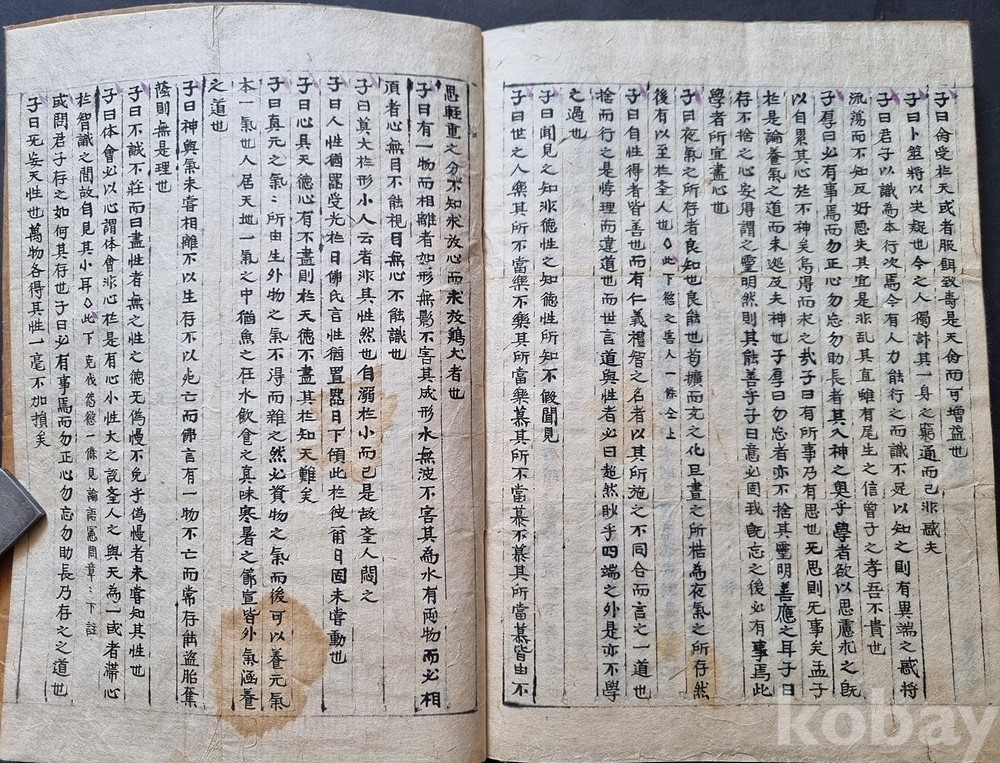 子曰命受於天或者服餌致壽是天命而可增益也
子曰卜筮將以決疑也今之人獨計其一身之窮通而已非惑夫
子曰君子以識為本行次焉今有人力能行之而識不足以知之則有異端之惑將
流蕩而不知反好惡失其宜是非乱其直雖有尾生之信曾子之孝吾不貴也
子厚曰必有事焉而勿正心勿忘勿助長者其入神之奧乎學者欲以思慮求之旣
以自累其心於不神矣烏得而求之㦲子曰有所事乃有思也无思則无事矣孟子
於是論養氣之道而未遽及夫神也子厚曰勿忘者亦不捨其靈明善應之耳子曰
存不捨之心安得謂之靈明然則其能善乎子曰意必固我旣忘之後必有事焉此
學者所宜盡心也
子曰夜氣之所存者良知也良能也苟擴而充之化旦晝之所梏為夜氣之所存然
後有以至於圣人也 此下慾之害人一條仝上
子曰自性得者皆善也而有仁義禮智之名者以其所施之不同合而言之一道也
捨而行之是悖理而違道也而世言道與性者必曰超然眇乎四端之外是亦不學
之過也
子曰聞見之知非德性之知德性所知不假聞見
子曰世之人樂其所不當樂不樂其所當樂慕其所不當慕不慕其所當慕皆由不
思輕重之分不知求放心而求放鷄犬者也
子曰有一物而相離者如形無影不害其成形水無波不害其為水有兩物而必相
須者心無目不能視目無心不能識也
子曰莫大於形小人云者非其性然也自溺於小而已是故圣人閔之
子曰人性猶器受光於日佛氏言性猶置器日下傾此於彼甭日固未嘗動也
子曰心具天德心有不盡則於天德不盡其於知天難矣
子曰真元之氣〻所由生外物之氣不得而雜之然必資物之氣而後可以養元氣
本一氣也人居天地一氣之中猶魚之在水飮食之真味寒暑之節宣皆外氣涵養
之道也
子曰神與氣未嘗相離不以生存不以死亡而佛言有一物不亡而常存能盜胎奪
蔭則無是理也
子曰不誠不莊而曰盡性者無之性之德无偽慢不免乎偽慢者未嘗知其性也
子曰体會必以心謂体會非心於是有心小性大之說圣人之與天為一或者滯心
於智識之間故自見其小耳 此下克伐怨慾一條見論語憲問章〻下註
或問君子存之如何其存也子曰必有事焉而勿正心勿忘勿助長乃存之之道也
子曰无妄天性也萬物各得其性一毫不加損矣
kobay